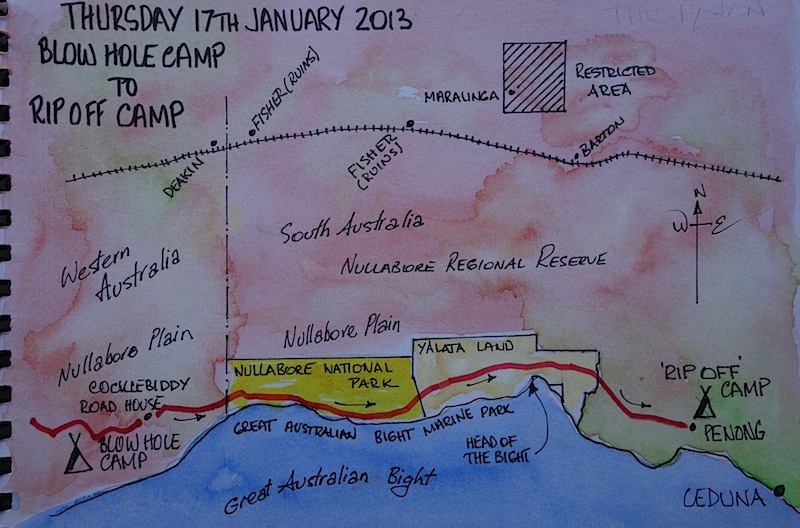 THURSDAY 17TH JANUARY 2013
BLOW HOLE CAMP
TO
RIP OFF CAMP
FISHER (RUINS)
MARALINGA
RESTRICTED
AREA
DEAKIN
FISHER
(RUINS)
BARTON
N
W E
Western
Australia
South Australia
NULLABORE REGIONAL RESERVE
Nullabore Plain
Nullabore Plain
COCKLEBIDDY
ROAD HOUSE
BLOW HOLE
CAMP
NULLABORE NATIONAL
PARK
YALATA LAND
GREAT AUSTRALIAN BIGHT MARINE PARK
HEAD OF
THE BIGHT
'RIP OFF'
CAMP
PENONG
Great Australian Bight
CEDUNA